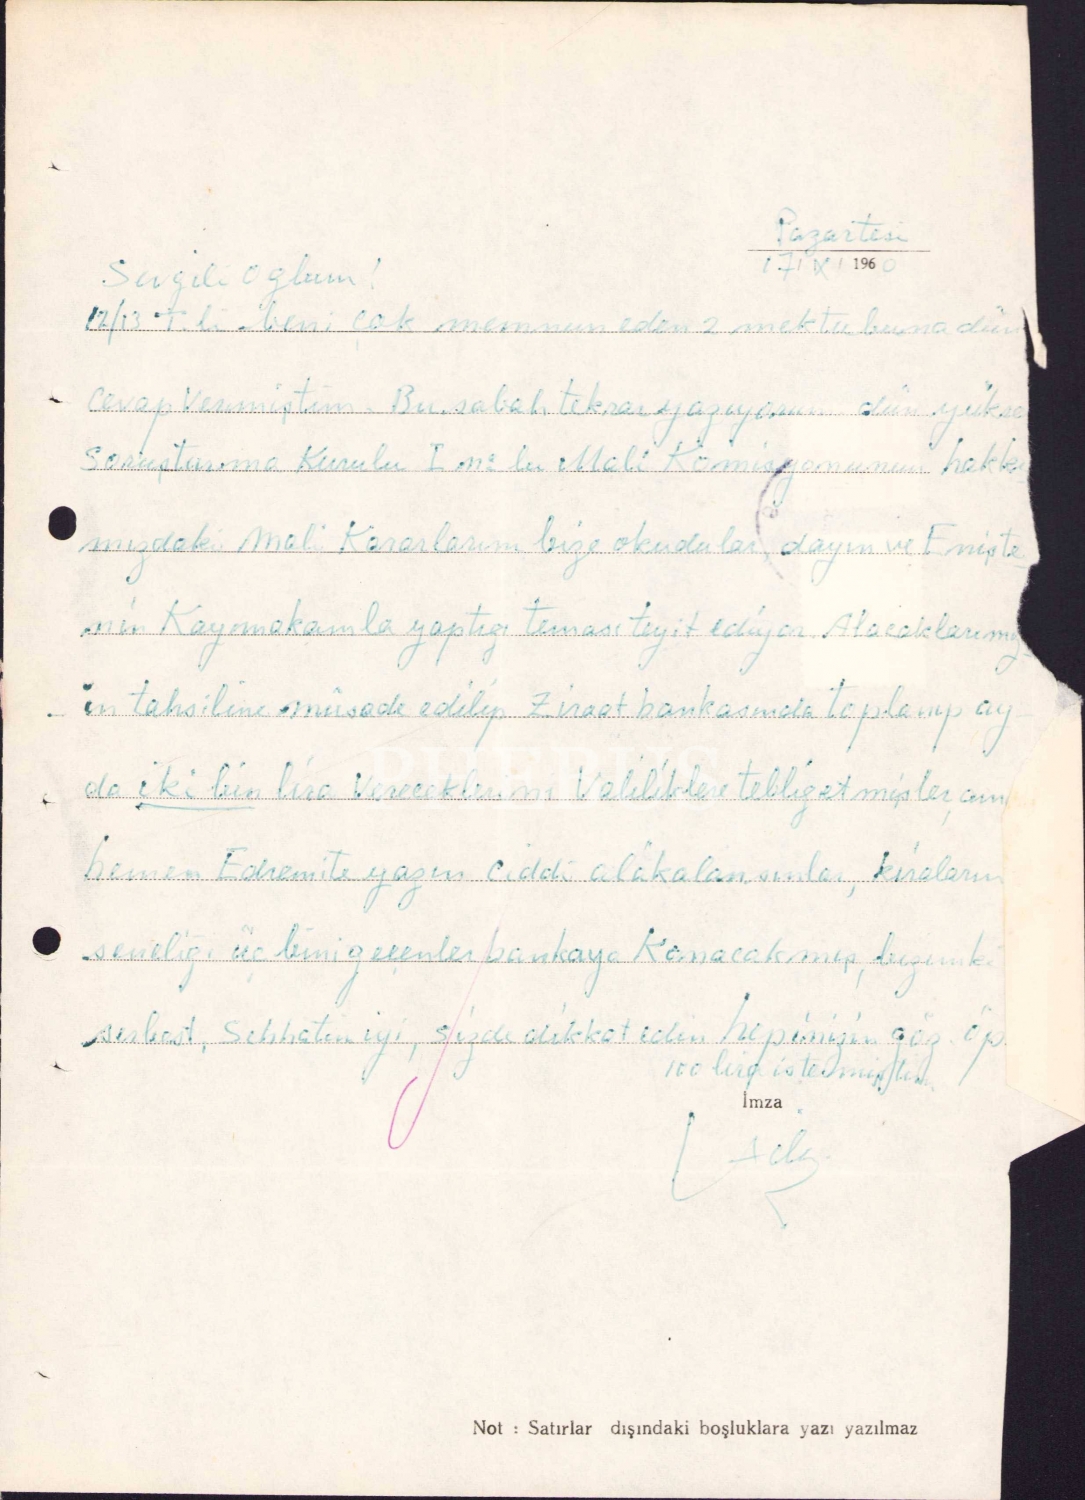 Pazartesi
17 IX 1960
Sevgili Oglum!
12/13 T. li beni çok memnun eden 2 mektubuna dün
cevap vermiştim. Bu sabah tekrar yazıyorum dün yükse
Soruşturma Kurulu I no lu Mali Komisyonunun hakkı
mızdaki Mali Kararlarını bize okudular, dayın ve Enişte
nin Kaymakamla yaptıgı teması teyit ediyor. Alacaklarımız
ın tahsiline müsade edilip Ziraat bankasında toplanıp ay
da iki bin lira Vereceklerini Valiliklere tebliğ etmişler,
hemen Edremite yazın ciddi alâkalansınlar, kiraların
seneliği üç bini geçenler bankaya Konacakmış, bizimki
serbest, Sıhhatim iyi, sizde dikkat edin hepinizin göz. öp.
100 lira istemiştim
İmza
PHEBUS
Not : Satırlar dışındaki boşluklara yazı yazılmaz